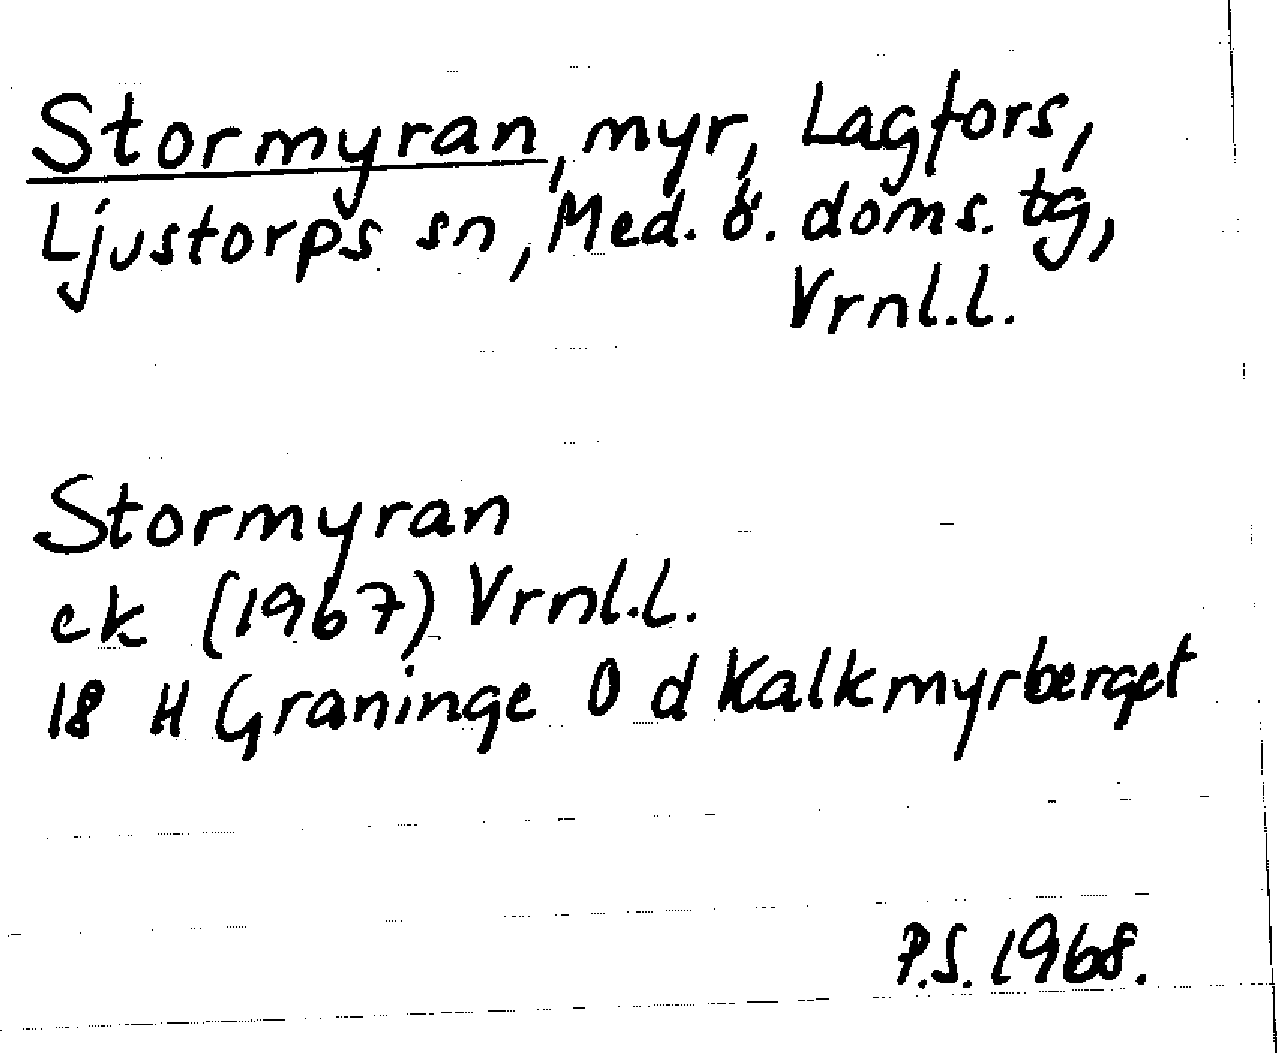 Stormyran, myr, Lagfors,
Ljustorps sn, Med. ö. doms. tg,
Vrnl.l.
Stormyran
ek (1967) Vrnl.l.
18 H Graninge O d Kalkmyrberget
P.S. 1968.